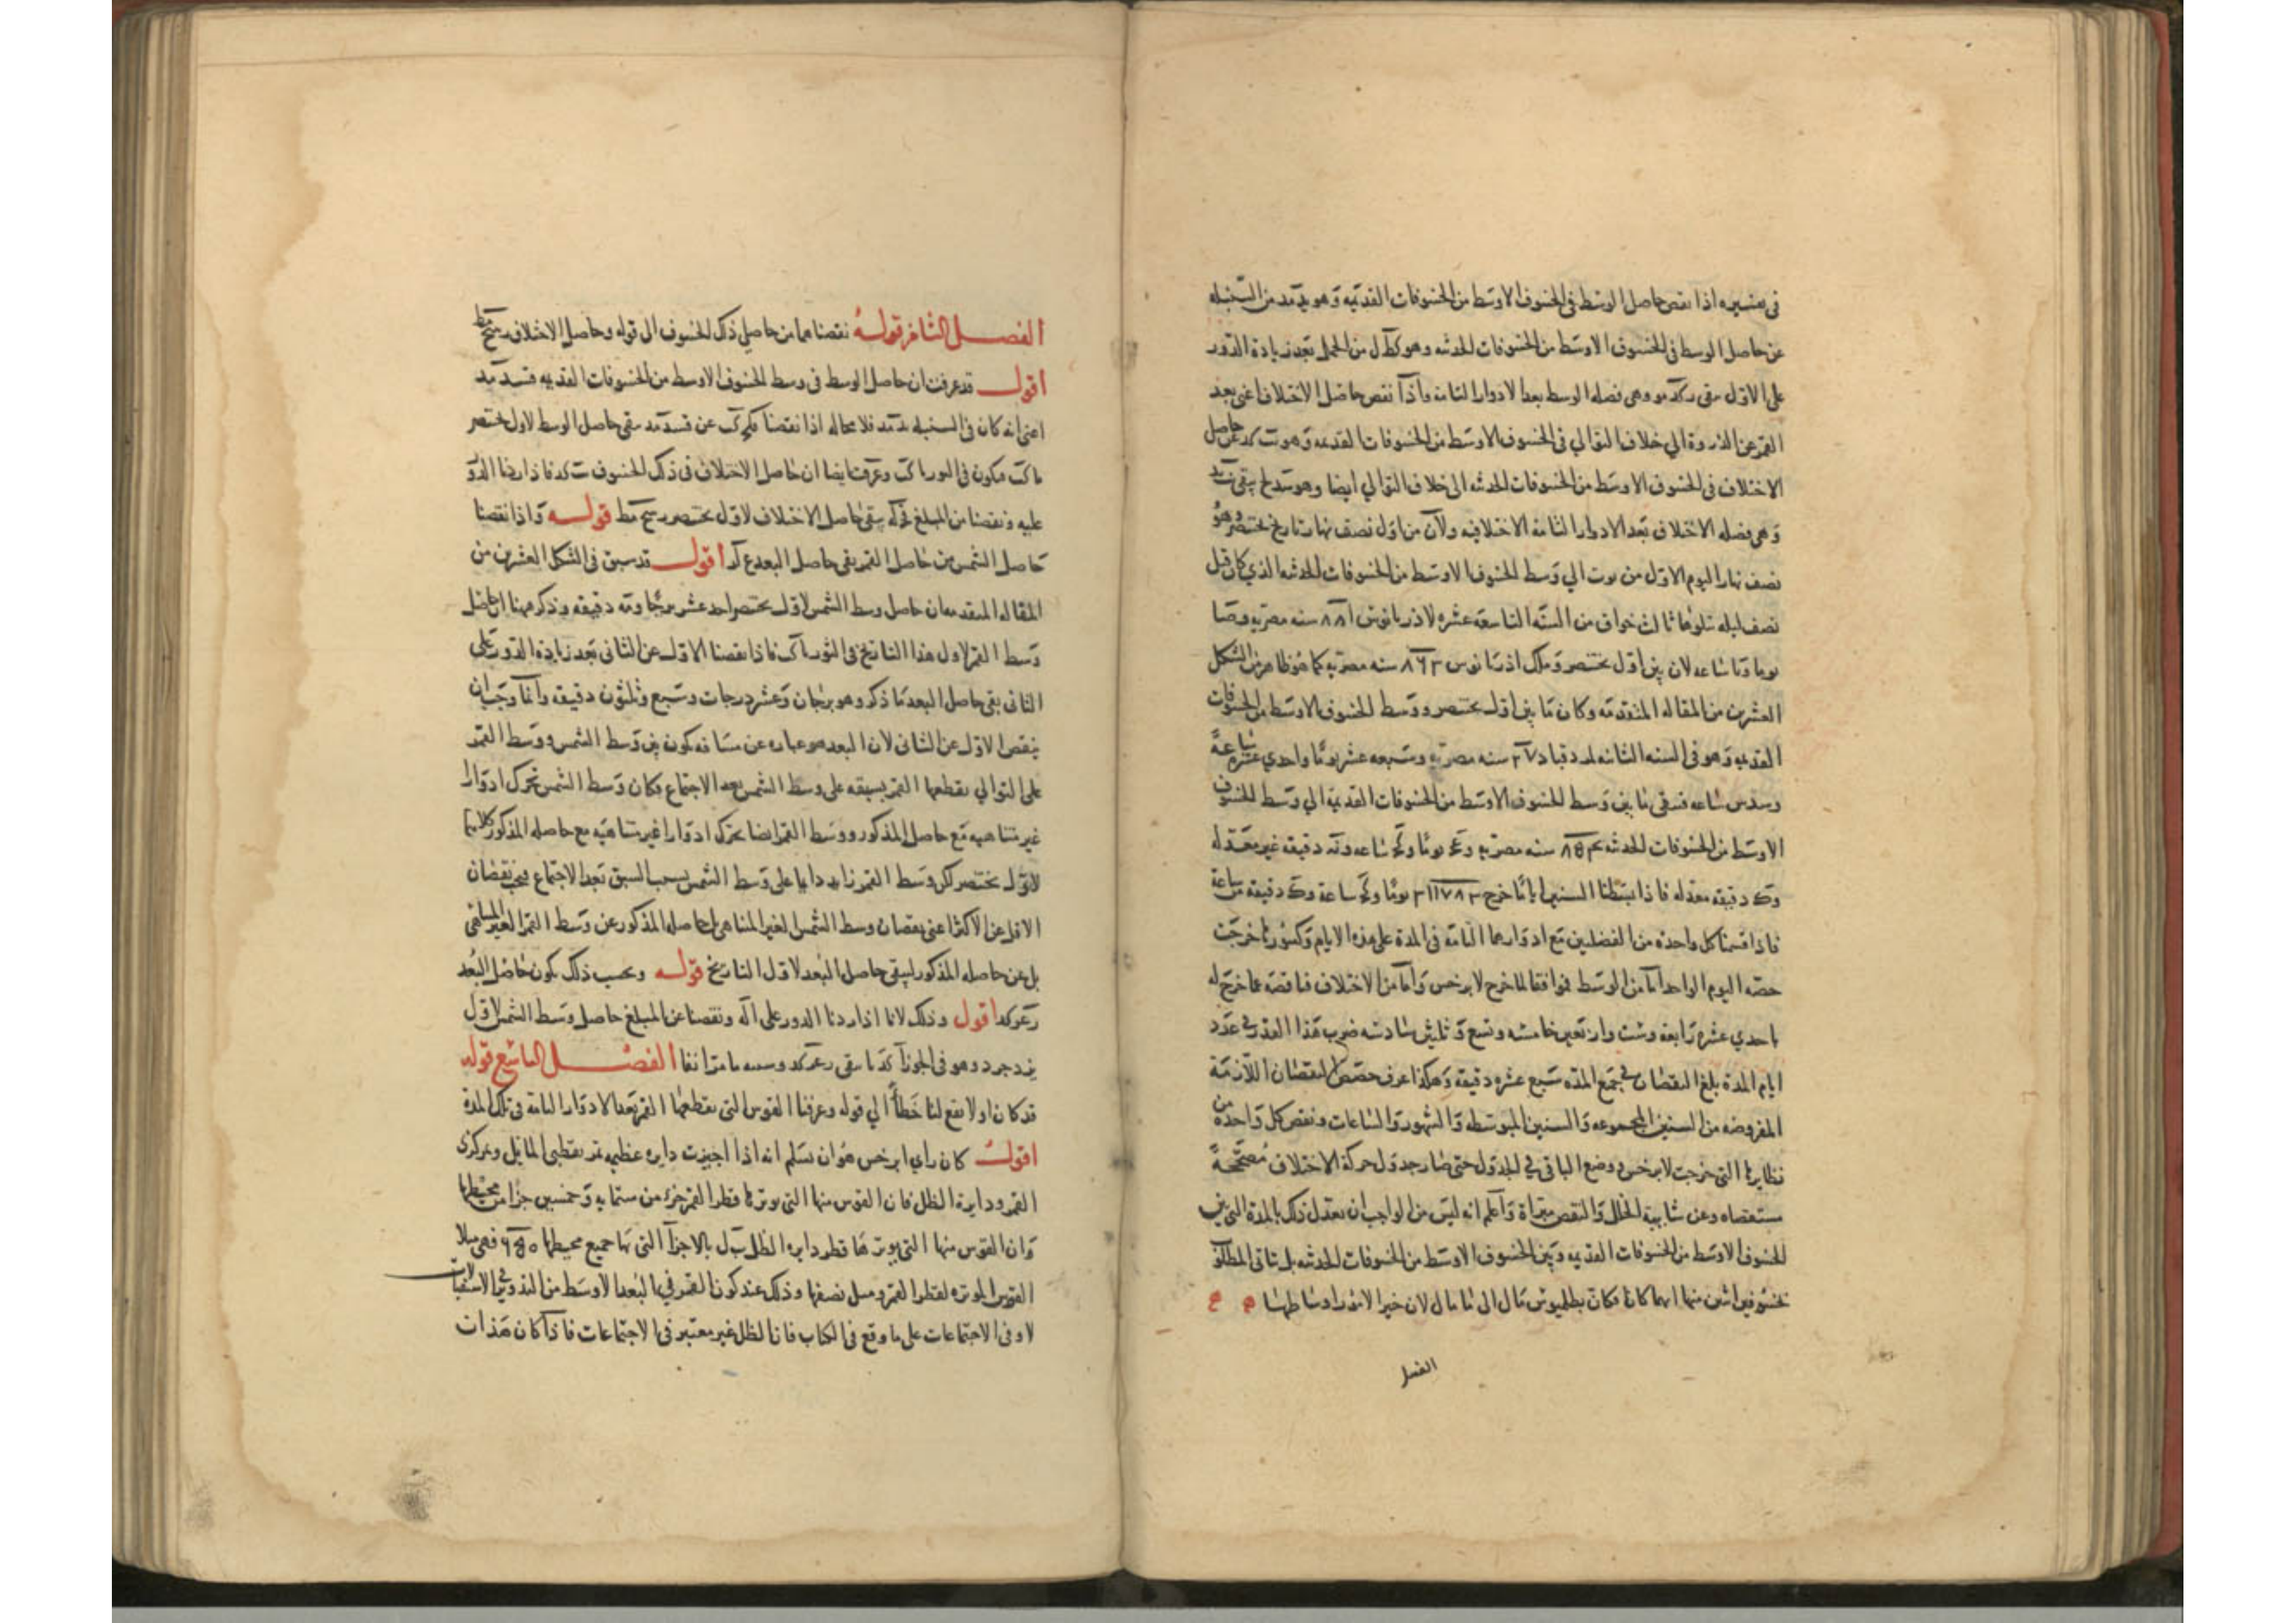 في تفسيره اذا نقص حاصل الوسط في الخسوف الاوسط من الخسوفات القديمة وهو يد مد من السنبله
عن حاصل الوسط في الخسوف الاوسط من الخسوفات الحدثه وهو كط ل من الحمل بعد زيادة الدور
على الاول بقى ركد مو وهي فضله الوسط بعد الادوار التامة واذا نقص حاصل الاختلاف اعني بعد
القمر عن الذروة الى خلاف التوالي في الخسوف الاوسط من الخسوفات القديمه وهو يب كد عن حاصل
الاختلاف في الخسوف الاوسط من الخسوفات الحدثه الى خلاف التوالي ايضا وهو سد لح بقى
وهي فضله الاختلاف بعد الادوار التامة الاختلافيه ولان من اول نصف نهار تاريخ بختنصر وهو
نصف نهار اليوم الاول من توت الى وسط الخسوف الاوسط من الخسوفات الحدثه الذي كان قبل
نصف ليله تتلوها ثالث من السنة التاسعة عشره لاذريانوس ٨٨١ سنه مصريه
يوما وساعه لان بين اول بختنصر وملك اذريانوس ٨٦٣ سنه مصريه كما هو ظاهر من الشكل
العشرين من المقاله المتقدمه وكان ما بين اول بختنصر ووسط الخسوف الاوسط من الخسوفات
القديمه وهو في السنه الثانيه لمردقباد ٢٧ سنه مصريه وسبعه عشر يوما واحدي عشره ساعة
وسدس ساعه فبقي ما بين وسط الخسوف الاوسط من الخسوفات القديمة الى وسط الخسوف
الاوسط من الخسوفات الحدثه ٨٥٤ سنه مصريه و يوما و ساعه و دقيقه غير معدله
و دقيقه معدله فاذا بسطنا السنين اياما خرج ٣١١٧٨٣ يوما و ساعة و دقيقه من ساعة
فاذا قسمنا كل واحده من الفضلين مع ادوارهما التامة في المدة على هذه الايام وكسورها خرجت
حصه اليوم الواحد اما من الوسط فموافقا لما خرج لابرخس واما من الاختلاف فناقصه عما خرج له
باحدي عشره رابعه وست واربعين خامسه وتسع وثلثين سادسه ضرب هذا القدر في عدد
ايام المدة بلغ النقصان في جميع المدة سبع عشره دقيقه وهكذا عرف حصص النقصان اللازمة
المفروضه من السنين المجموعه والسنين المبوسطه والشهور والساعات ونقص كل واحدة من
نظايرها التي خرجت لابرخس ووضع الباقي في الجدول حتى صار جدول حركة الاختلاف مصححة
مستقصاه وعن شايبة الخلل والنقص مبراة واعلم انه ليس من الواجب ان يعدل ذلك بالمدة التي بين
الخسوف الاوسط من الخسوفات القديمه وبين الخسوف الاوسط من الخسوفات الحدثه بل تاتي المطلوب
بخسوفين اثنين منها ايهما كانا فكان بطلميوس مال الى ما مال لان خير الامور اوساطها
الفصل
الفصل الثامن قوله نقصناهما من حاصلي ذلك الخسوف الى قوله وحاصل الاختلاف رسح مط
اقول قد عرفت ان حاصل الوسط في وسط الخسوف الاوسط من الخسوفات القديمه قسد مد
اعني انه كان في السنبله يد مد فلا محاله اذا نقصنا عن قسد مد بقى حاصل الوسط لاول بختنصر
ما كب فيكون في الثور ا كب وعرفت ايضا ان حاصل الاختلاف في ذلك الخسوف يب كد فاذا زدنا الدور
عليه ونقصنا من المبلغ بقى حاصل الاختلاف لاول بختنصر رسح مط قوله واذا نقصنا
حاصل الشمس من حاصل القمر بقى حاصل البعد ع لر اقول قد سبق في الشكل العشرين من
المقاله المتقدمه ان حاصل وسط الشمس لاول بختنصر احد عشر برجا و دقيقه وذكر ههنا ان حاصل
وسط القمر لاول هذا التاريخ في الثور ا كب فاذا نقصنا الاول عن الثاني بعد زيادة الدور على
الثاني بقى حاصل البعد ما ذكر وهو برجان وعشر درجات وسبع وثلثون دقيقه وانما وجب ان
ينقص الاول عن الثاني لان البعد هو عباره عن مسافه تكون بين وسط الشمس ووسط القمر
على التوالي يقطعها القمر بسبقه على وسط الشمس بعد الاجتماع فكان وسط الشمس تحرك ادوارا
غير متناهيه مع حاصله المذكور ووسط القمر ايضا تحرك ادوارا غير متناهيه مع حاصله المذكور كلاهما
لاول بختنصر لكن وسط القمر زايد دايما على وسط الشمس بسبب السبق بعد الاجتماع فيجب نقصان
الاقل عن الاكثر اعني نقصان وسط الشمس الغير المتناهي بل حاصله المذكور عن وسط القمر الغير المتناهي
بل عن حاصله المذكور ليبقى حاصل البعد لاول التاريخ قوله وبحسب ذلك يكون حاصل البعد
اقول وذلك لانا اذا زدنا الدور على ونقصنا عن المبلغ حاصل وسط الشمس لاول
يزدجرد وهو في الجوزا بقى وسببه ما مر انفا الفصل التاسع قوله
قد كان اولا يقع لنا خطأ الى قوله وعرفنا القوس التي يقطعها القمر بعد الادوار التامة في تلك المدة
اقول كان راي ابرخس هو ان نسلم انه اذا اجيزت دايره عظيمه تمر بقطبي المايل وبمركزى
القمر ودايرة الظل فان القوس منها التي يوترها قطر القمر جزء من ستمايه وخمسين جزا من محيطها
وان القوس منها التي يوترها قطر دايره الظل ب ل بالاجزآ التي بها جميع محيطها ٦٥٠ فهي مثلا
القوس الموتره لقطر القمر ومثل نصفها وذلك عند كون القمر في البعد الاوسط من التدوير في الاستقبالات
لا وفى الاجتماعات على ما وقع في الكتاب فان الظل غير معتبر في الاجتماعات فاذا كان هذان